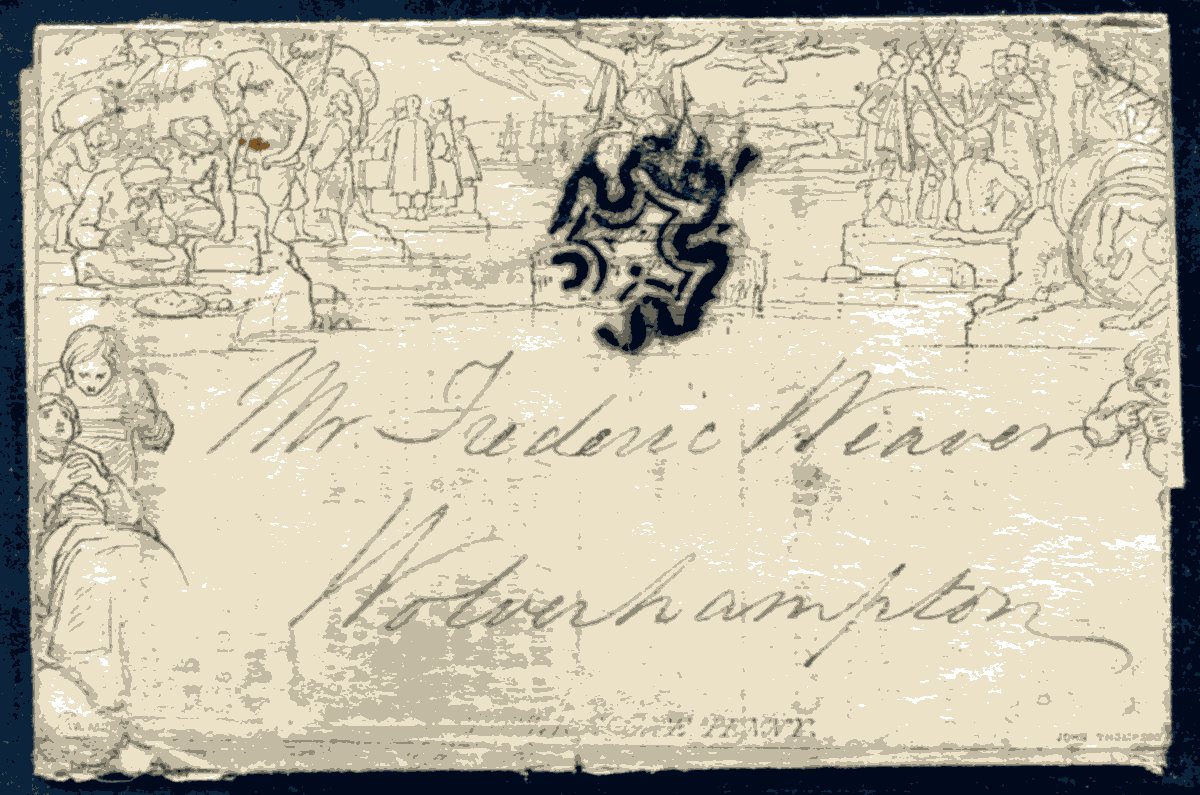 Mr Frederic Weaver
Wolverhampton
PENNY.
JOHN THOMPSON